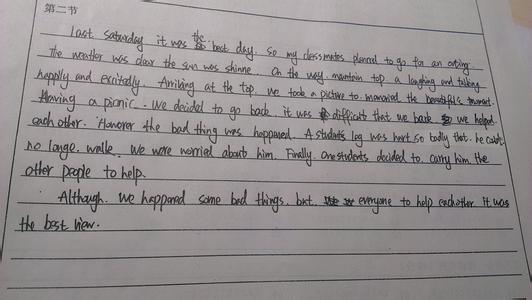 第二节
Last saturday it was the best day. So my classmates planned to go for an outing.
The weather was clear the sun was shinne. On the way mantain top a laughing and talking
happily and excitedly. Arriving at the top. We took a picture to memoried the beautiful's moment.
Having a picnic. We decided to go back. it was difficult that we back. so we helped
each other. However the bad thing was happened. A students leg was hurt so badly that. he couldn't
no longe. walke. We were worried about him. Finally. one students decided to carry him. the
other people to help.
Although. We happened some bad things. but. everyone to help eachother it was
the best view.